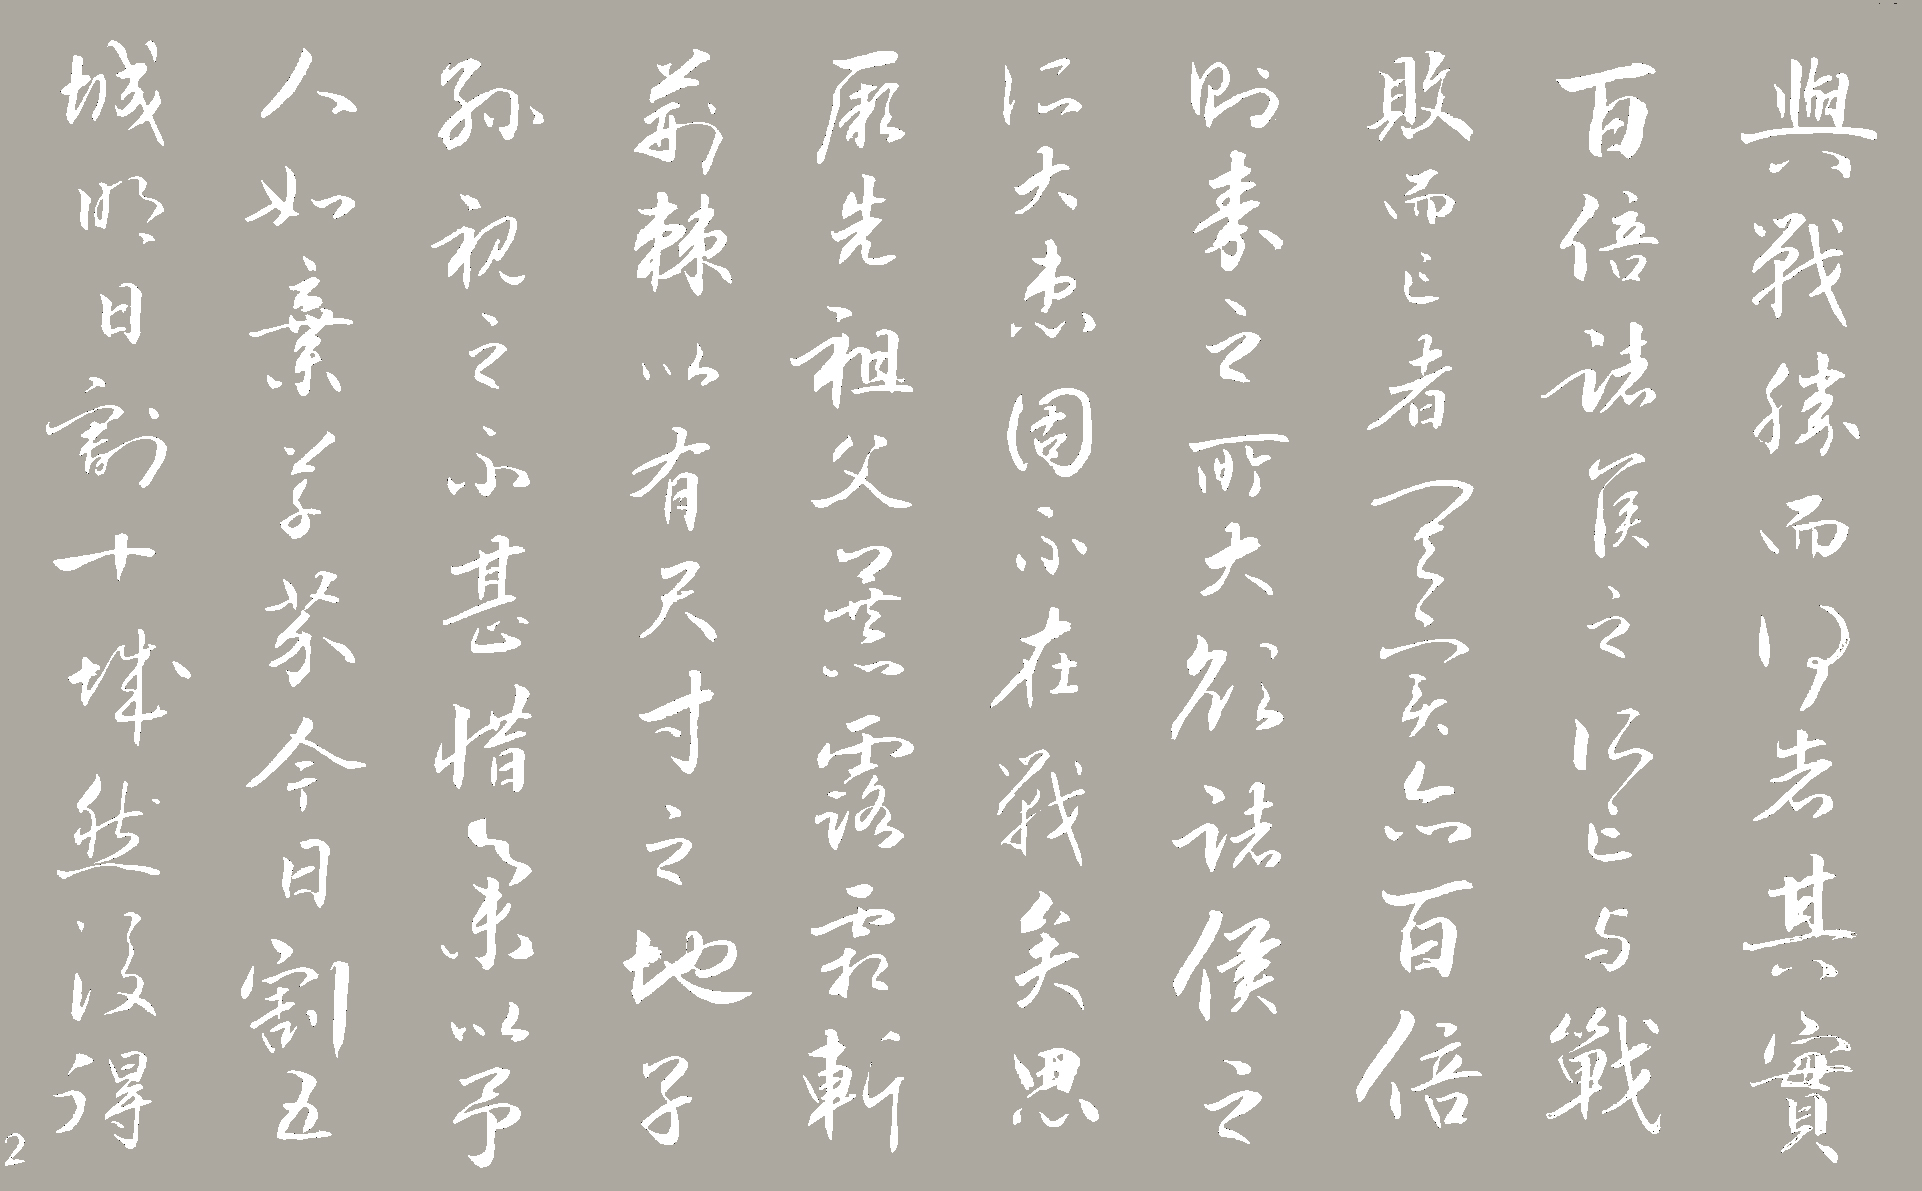 與戰勝而得者其實
百倍諸侯之所亡与戰
敗而亡者其實亦百倍
則秦之所大欲諸侯之
所大患固不在戰矣思
厥先祖父暴露霜斬
荊棘以有尺寸之地子
孫視之不甚惜舉以予
人如棄草芥今日割五
城明日割十城然後得
2